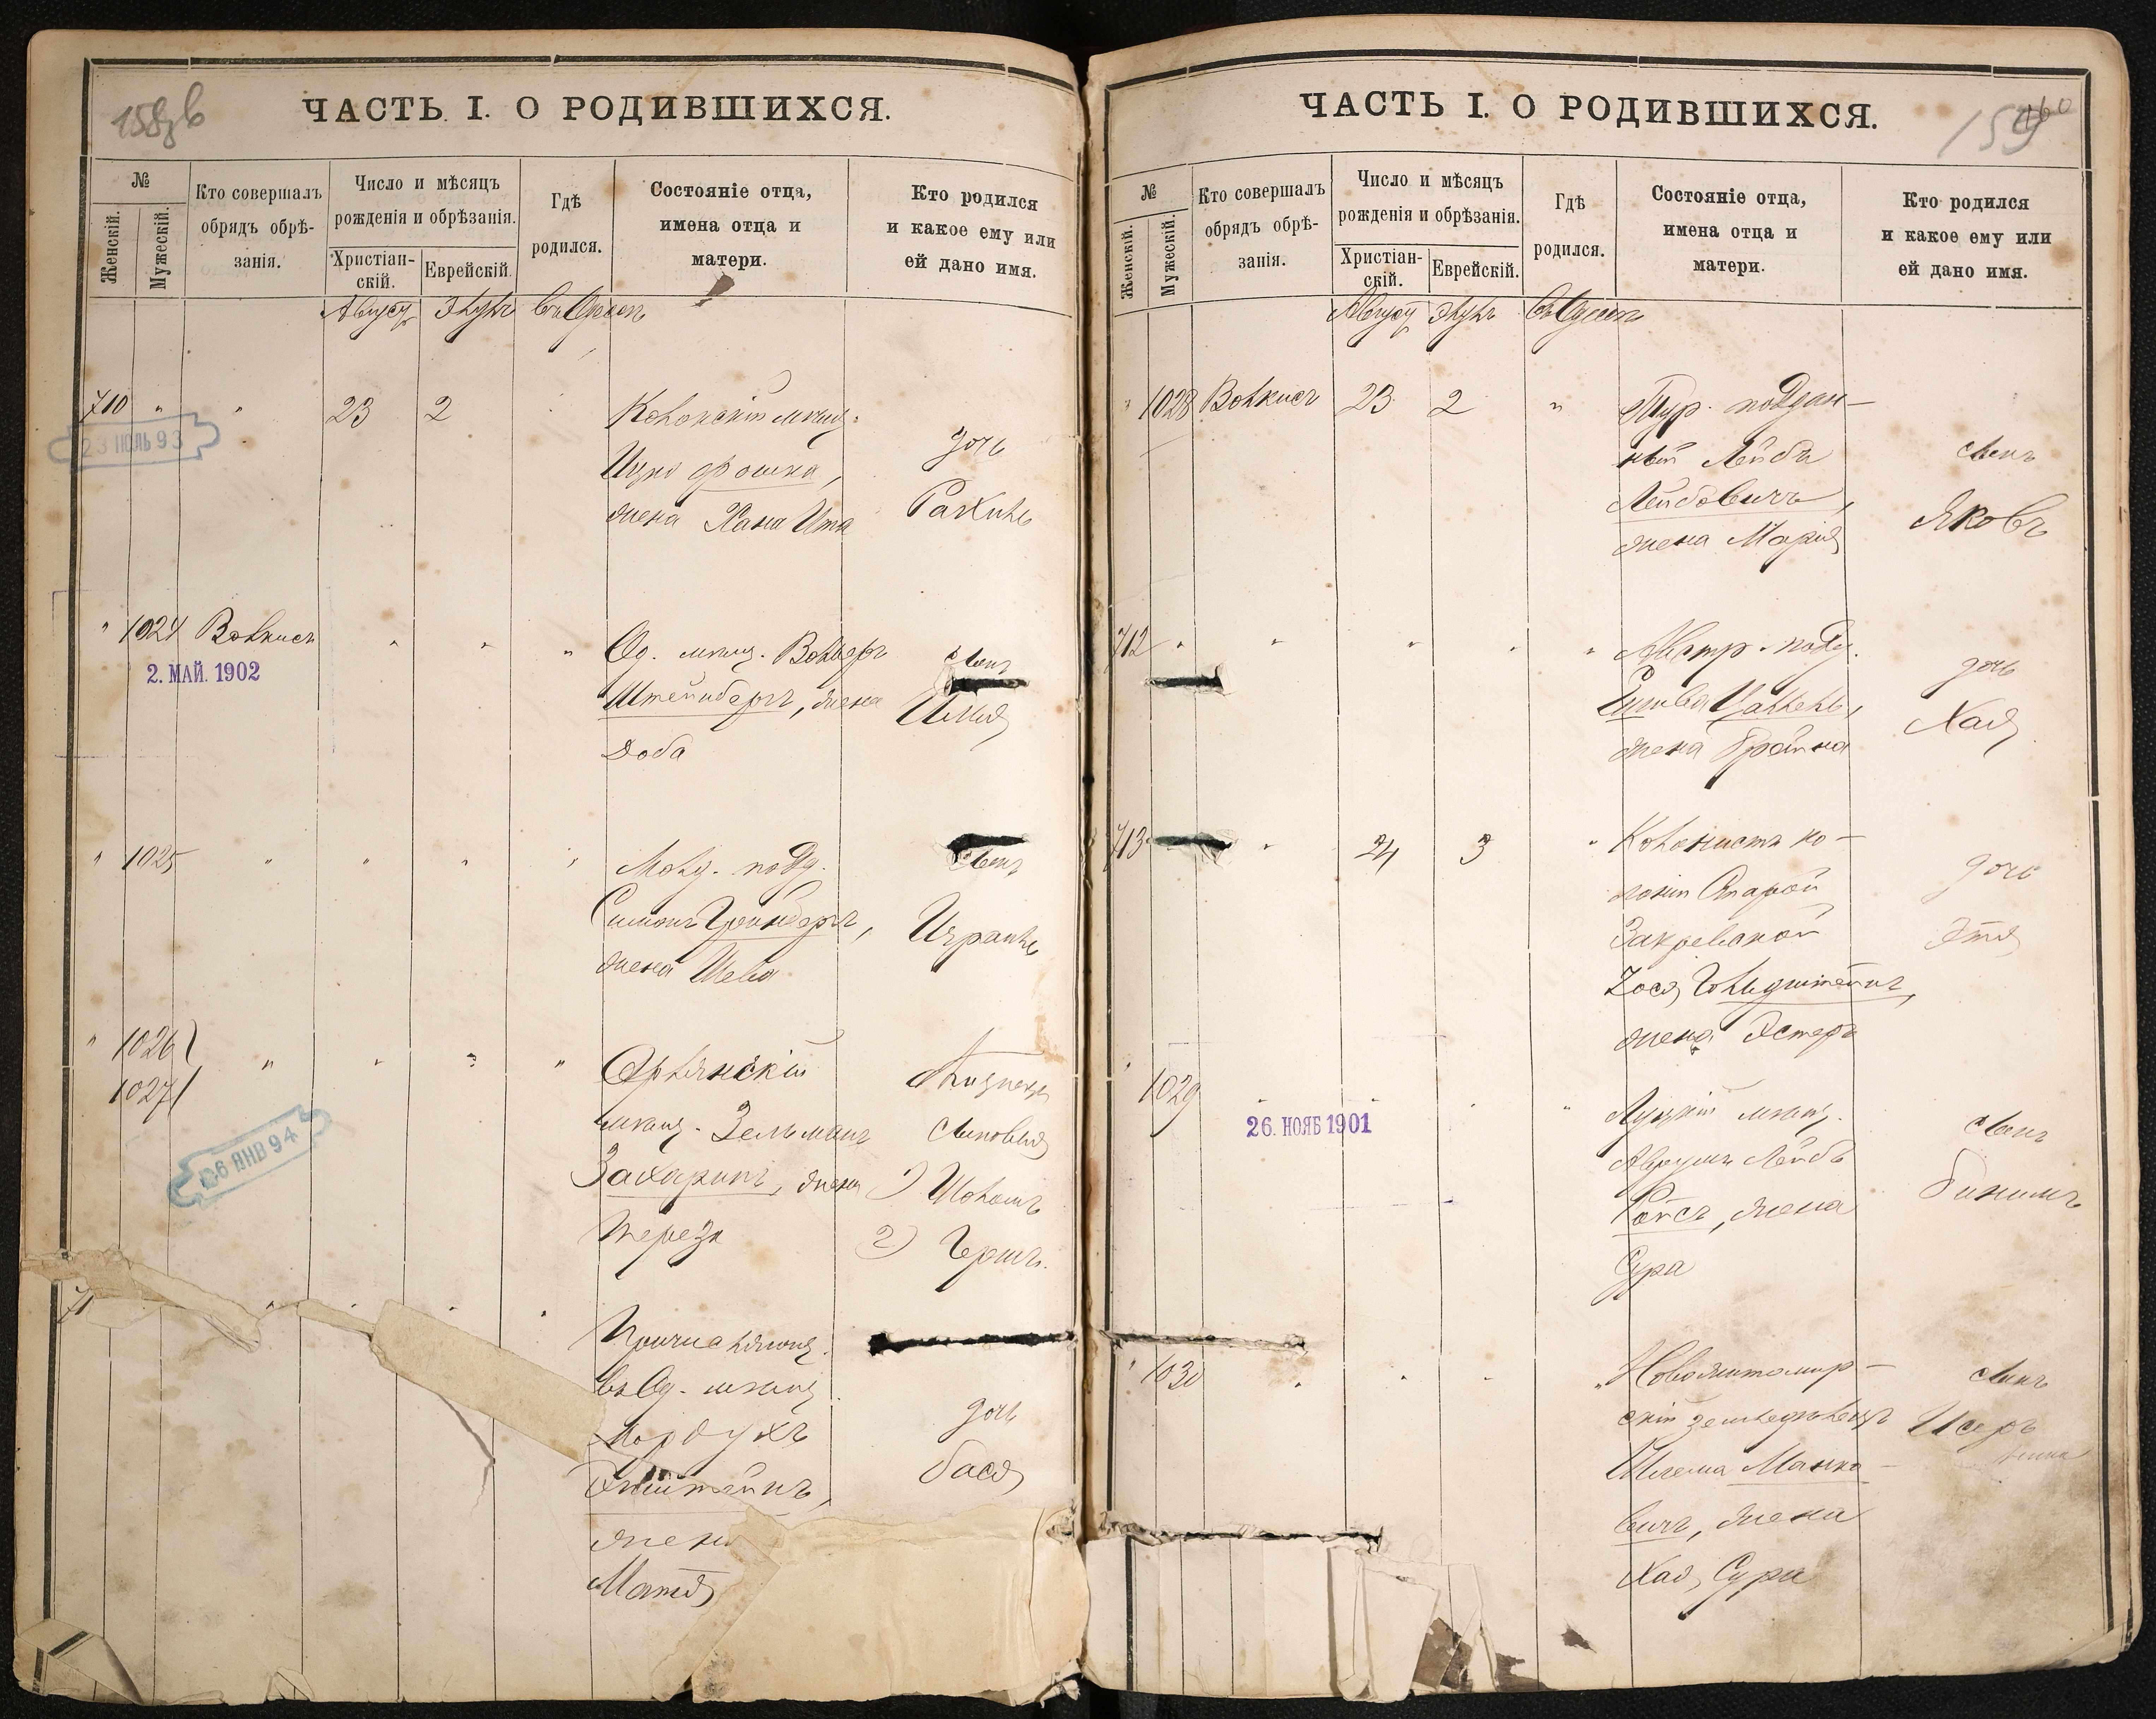 158 об
ЧАСТЬ I. О РОДИВШИХСЯ.
№
Женскій.
Мужескій.
Кто совершалъ
обрядъ обрѣ-
занія.
Число и мѣсяцъ
рожденія и обрѣзанія.
Христіан-
скій.
Еврейскій.
Гдѣ
родился.
Состояніе отца,
имена отца и
матери.
Кто родился
и какое ему или
ей дано имя.
Августъ Элулъ въ Одессѣ
710 " " 23 2
23 ІЮЛЬ 93
мѣщ.
Ицко Фошка,
жена Хана Ита
дочь
Рахиль
" 1024 Волкисъ " " "
2. МАЙ. 1902
Од. мѣщ. Вольфъ
Штейнбергъ, жена
Доба
сынъ
" 1025 " " " "
Молд. подд.
Симонъ Гринбергъ,
жена Шева
сынъ
Израиль
" 1026
1027 " " " "
26 ЯНВ 94
мѣщ. Зельманъ
Захаринъ, жена
Тереза
Близнецы
сыновья
1) Шоломъ
2) Гершъ.
71 " " " "
Причисляющ.
въ Од. мѣщ.
Мордухъ
Эпштейнъ,
жена
Матя
дочь
Бася
159
160
ЧАСТЬ I. О РОДИВШИХСЯ.
№
Женскій.
Мужескій.
Кто совершалъ
обрядъ обрѣ-
занія.
Число и мѣсяцъ
рожденія и обрѣзанія.
Христіан-
скій.
Еврейскій.
Гдѣ
родился.
Состояніе отца,
имена отца и
матери.
Кто родился
и какое ему или
ей дано имя.
Августъ Элулъ въ Одессѣ
" 1028 Волкисъ 23 2 "
Тур. поддан-
ный Лейбъ
Лейбовичъ,
жена Марія
сынъ
Яковъ
712 " " " " "
Австр. подд.
жена Брайна
дочь
Хая
713 " 24 3 "
Колонистъ ко-
лоніи Старой
Закревской
Зося Гольдштейнъ,
жена Эстеръ
дочь
Этя
" 1029 " " " "
26. НОЯБ 1901
Луцкій мѣщ.
Аврумъ Лейбъ
Ройсъ, жена
Сура
сынъ
Бинимъ
" 1030 " " " "
Новожитомир-
скій земледѣлецъ
Шлема Манко-
вичъ, жена
Хая Сура
сынъ
Исеръ